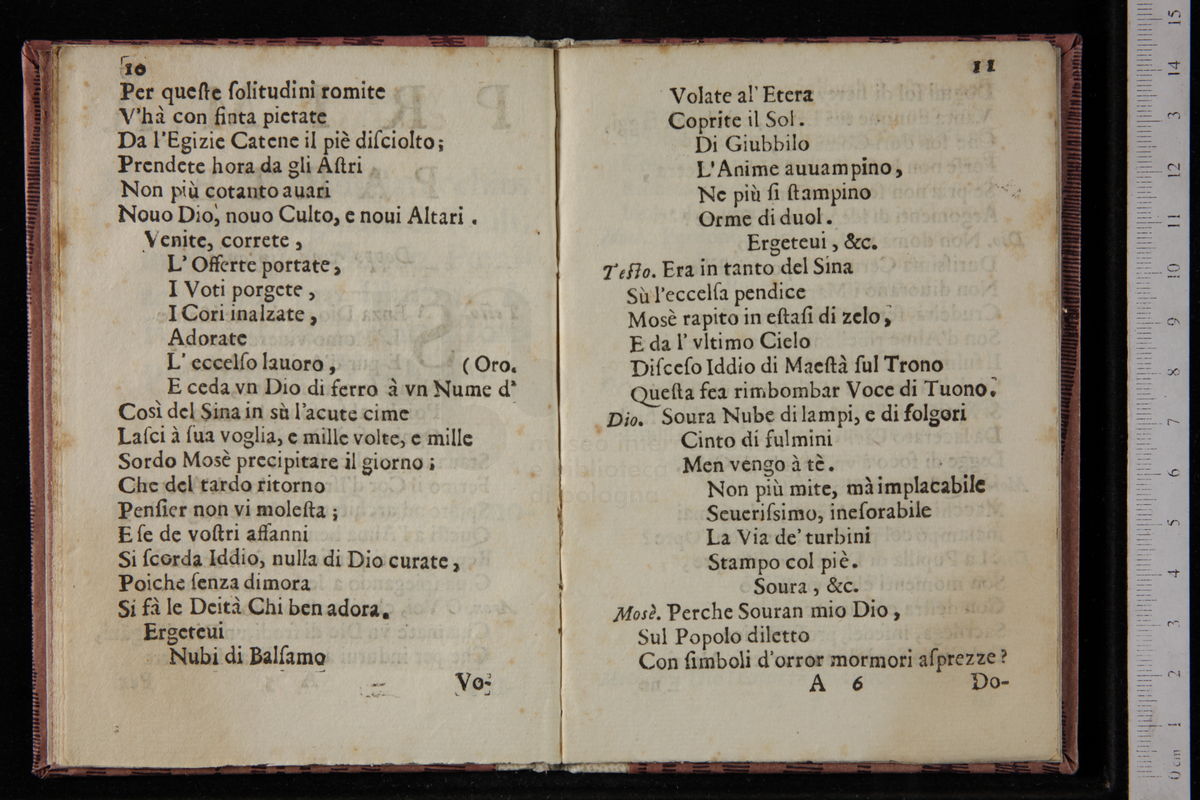 10
Per queſte ſolitudini romite
V'hà con finta pietate
Da l'Egizie Catene il piè diſciolto;
Prendete hora da gli Aſtri
Non più cotanto auari
Nouo Dio, nouo Culto, e noui Altari.
Venite, correte,
L'Offerte portate,
I Voti porgete,
I Cori inalzate,
Adorate
L'eccelſo lauoro, (Oro.
E ceda vn Dio di ferro à vn Nume d'
Così del Sina in sù l'acute cime
Laſci à ſua voglia, e mille volte, e mille
Sordo Mosè precipitare il giorno;
Che del tardo ritorno
Penſier non vi moleſta;
E ſe de voſtri affanni
Si ſcorda Iddio, nulla di Dio curate,
Poiche ſenza dimora
Si fà le Deità Chi ben adora.
Ergeteui
Nubi di Balſamo
Vo-
11
Volate al' Etera
Coprite il Sol.
Di Giubbilo
L'Anime auuampino,
Ne più ſi ſtampino
Orme di duol.
Ergeteui, &c.
Teſto. Era in tanto del Sina
Sù l'eccelſa pendice
Mosè rapito in eſtaſi di zelo,
E da l'vltimo Cielo
Diſceſo Iddio di Maeſtà ſul Trono
Queſta fea rimbombar Voce di Tuono.
Dio. Soura Nube di lampi, e di folgori
Cinto di fulmini
Men vengo à tè.
Non più mite, mà implacabile
Seueriſsimo, ineſorabile
La Via de' turbini
Stampo col piè.
Soura, &c.
Mosè. Perche Souran mio Dio,
Sul Popolo diletto
Con ſimboli d'orror mormori aſprezze?
A 6 Do-
museo inter
e biblioteca
di bologna
0 cm 1 2 3 4 5 6 7 8 9 10 11 12 13 14 15